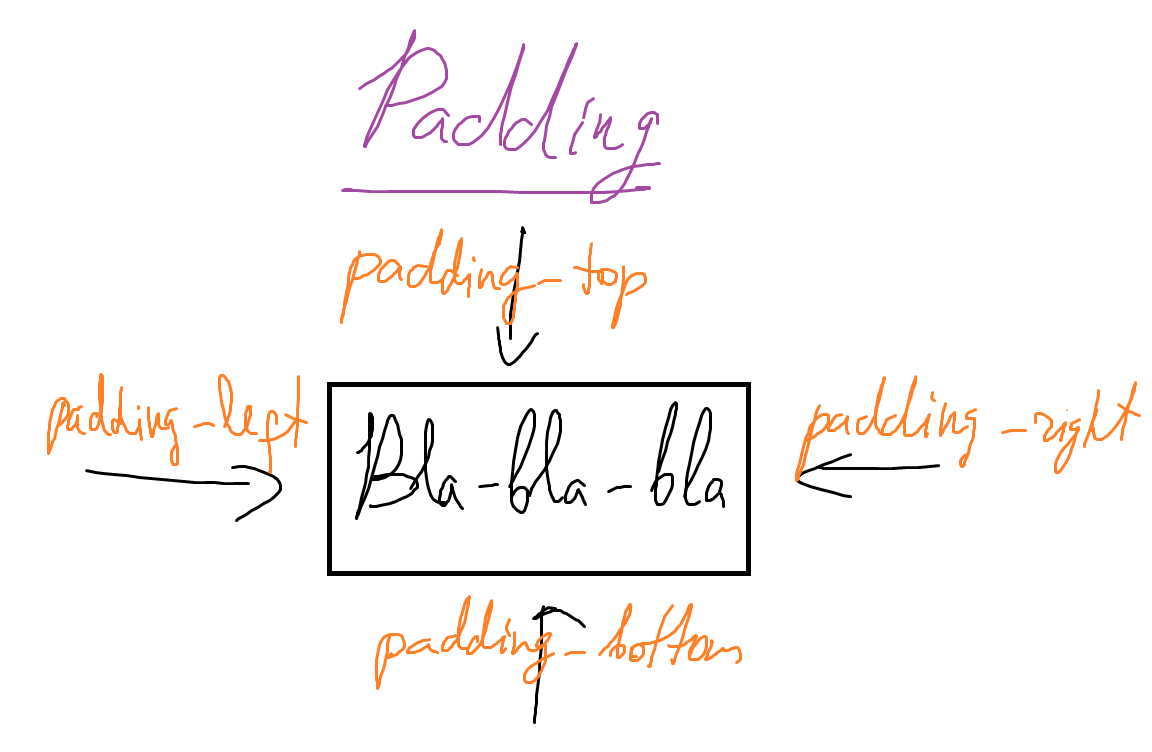 Padding
padding-top
padding-left
Bla-bla-bla
padding-right
padding-bottom